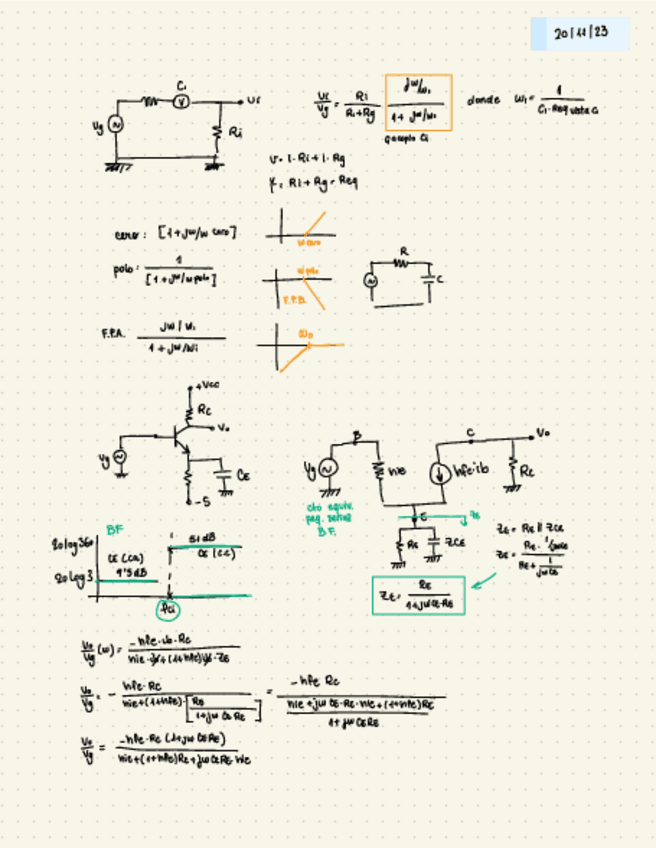 20/11/23
Ci
Vi
Vg
Ri
Vi/Vg = Ri/(Ri+Rg) · (jw/wi)/(1 + jw/wi) donde wi = 1/(Ci·Req vista Ci)
V = I·Ri + I·Rg
Ri + Rg = Req
cero: [1+jw/w cero]
w cero
polo: 1/[1+jw/w polo]
w polo
F.P.B.
R
C
F.P.A. (jw/wi)/(1+jw/wi)
+Vcc
Rc
Vo
Vg
CE
-5
B
C
Vo
Vg
hie
hfe·ib
Rc
cto equiv.
peq. señal
B.F.
E
ZE
RE
ZCE
ZE = RE || ZCE
ZE = (RE · 1/jwCE)/(RE + 1/jwCE)
ZE = RE/(1+jwCE·RE)
BF
20log360
51 dB
CE (CC)
CE (CA)
9'5 dB
20log3
fci
Vo/Vg (w) = (-hfe·ib·Rc)/(hie·ib+(1+hfe)ib·ZE)
Vo/Vg = - (hfe·Rc)/(hie+(1+hfe)·[RE/(1+jwCERE)]) = (-hfe Rc)/((hie+jwCE·RE·hie+(1+hfe)RE)/(1+jwCERE))
Vo/Vg = (-hfe·Rc (1+jwCERE))/(hie+(1+hfe)RE+jwCERE·hie)